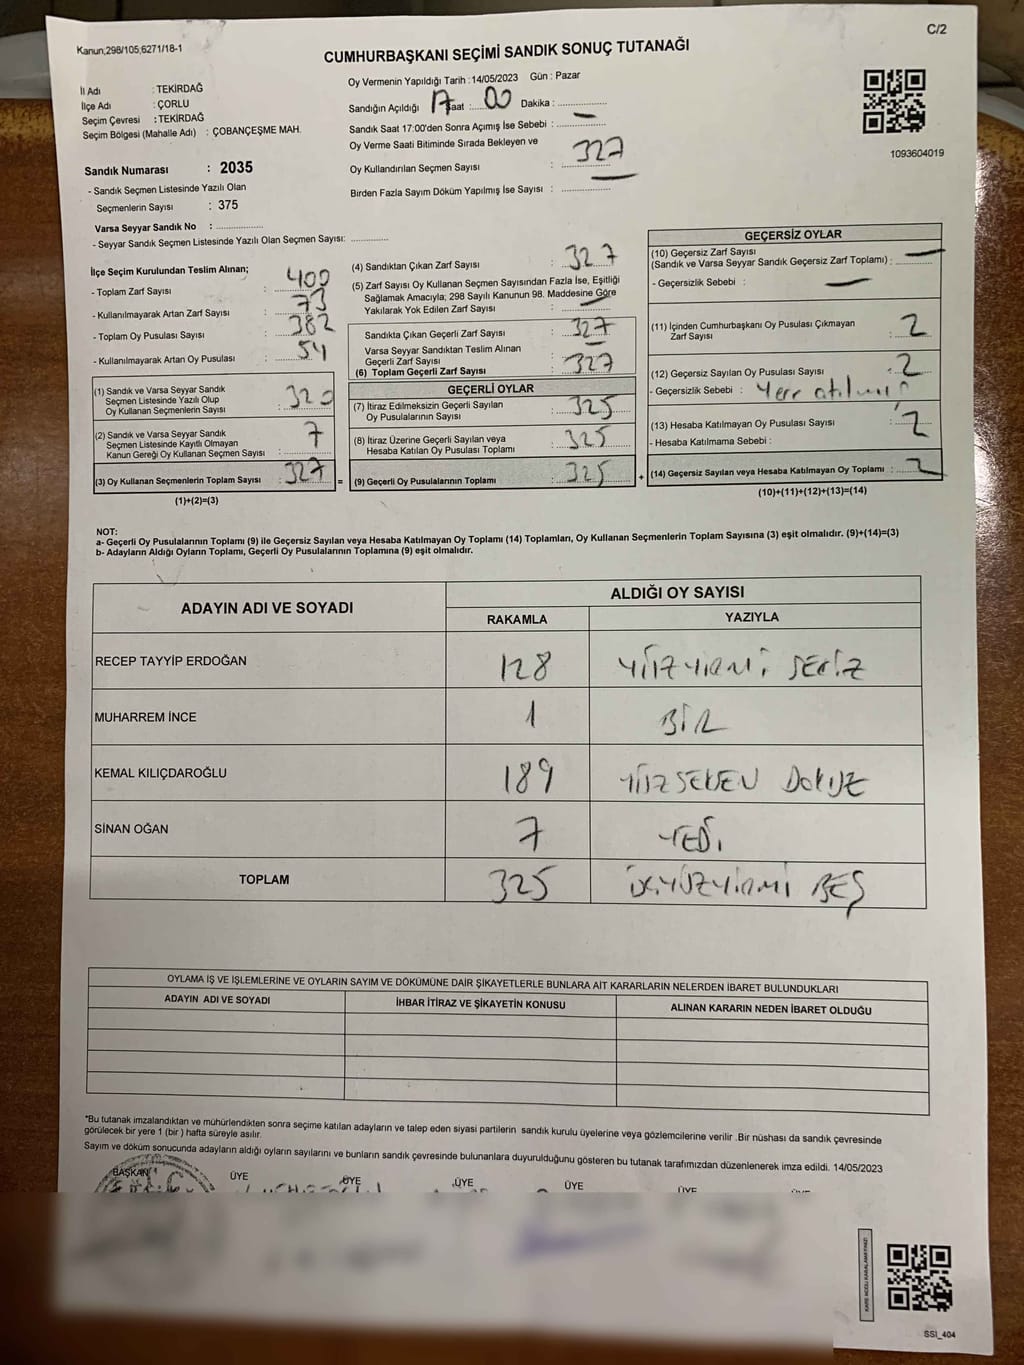 Kanun;298/105;6271/18-1
C/2
CUMHURBAŞKANI SEÇİMİ SANDIK SONUÇ TUTANAĞI
İl Adı : TEKİRDAĞ
İlçe Adı : ÇORLU
Seçim Çevresi : TEKİRDAĞ
Seçim Bölgesi (Mahalle Adı) : ÇOBANÇEŞME MAH.
Sandık Numarası : 2035
- Sandık Seçmen Listesinde Yazılı Olan
Seçmenlerin Sayısı : 375
Varsa Seyyar Sandık No : ................
- Seyyar Sandık Seçmen Listesinde Yazılı Olan Seçmen Sayısı: ............
Oy Vermenin Yapıldığı Tarih :14/05/2023 Gün : Pazar
Sandığın Açıldığı 17 Saat :.... 00 Dakika : ................
Sandık Saat 17:00'den Sonra Açımış İse Sebebi : ................
Oy Verme Saati Bitiminde Sırada Bekleyen ve
Oy Kullandırılan Seçmen Sayısı : 327
Birden Fazla Sayım Döküm Yapılmış İse Sayısı : ................
1093604019
İlçe Seçim Kurulundan Teslim Alınan;
- Toplam Zarf Sayısı : 400
- Kullanılmayarak Artan Zarf Sayısı : 73
- Toplam Oy Pusulası Sayısı : 382
- Kullanılmayarak Artan Oy Pusulası : 54
(1) Sandık ve Varsa Seyyar Sandık
Seçmen Listesinde Yazılı Olup
Oy Kullanan Seçmenlerin Sayısı : 320
(2) Sandık ve Varsa Seyyar Sandık
Seçmen Listesinde Kayıtlı Olmayan
Kanun Gereği Oy Kullanan Seçmen Sayısı : 7
(3) Oy Kullanan Seçmenlerin Toplam Sayısı : 327 =
(1)+(2)=(3)
(4) Sandıktan Çıkan Zarf Sayısı : 327
(5) Zarf Sayısı Oy Kullanan Seçmen Sayısından Fazla İse, Eşitliği
Sağlamak Amacıyla; 298 Sayılı Kanunun 98. Maddesine Göre
Yakılarak Yok Edilen Zarf Sayısı : —
Sandıkta Çıkan Geçerli Zarf Sayısı : 327
Varsa Seyyar Sandıktan Teslim Alınan
Geçerli Zarf Sayısı : —
(6) Toplam Geçerli Zarf Sayısı : 327
GEÇERLİ OYLAR
(7) İtiraz Edilmeksizin Geçerli Sayılan
Oy Pusulalarının Sayısı : 325
(8) İtiraz Üzerine Geçerli Sayılan veya
Hesaba Katılan Oy Pusulası Toplamı : 325
(9) Geçerli Oy Pusulalarının Toplamı : 325 +
GEÇERSİZ OYLAR
(10) Geçersiz Zarf Sayısı
(Sandık ve Varsa Seyyar Sandık Geçersiz Zarf Toplamı) : —
- Geçersizlik Sebebi : —
(11) İçinden Cumhurbaşkanı Oy Pusulası Çıkmayan
Zarf Sayısı : 2
(12) Geçersiz Sayılan Oy Pusulası Sayısı : 2
- Geçersizlik Sebebi :
(13) Hesaba Katılmayan Oy Pusulası Sayısı : 2
- Hesaba Katılmama Sebebi :
(14) Geçersiz Sayılan veya Hesaba Katılmayan Oy Toplamı : 2
(10)+(11)+(12)+(13)=(14)
NOT:
a- Geçerli Oy Pusulalarının Toplamı (9) ile Geçersiz Sayılan veya Hesaba Katılmayan Oy Toplamı (14) Toplamları, Oy Kullanan Seçmenlerin Toplam Sayısına (3) eşit olmalıdır. (9)+(14)=(3)
b- Adayların Aldığı Oyların Toplamı, Geçerli Oy Pusulalarının Toplamına (9) eşit olmalıdır.
ADAYIN ADI VE SOYADI ALDIĞI OY SAYISI
RAKAMLA YAZIYLA
RECEP TAYYİP ERDOĞAN 128 YÜZYİRMİ SEKİZ
MUHARREM İNCE 1 BİR
KEMAL KILIÇDAROĞLU 189 YÜZSEKSEN DOKUZ
SİNAN OĞAN 7 YEDİ
TOPLAM 325 ÜÇYÜZYİRMİ BEŞ
OYLAMA İŞ VE İŞLEMLERİNE VE OYLARIN SAYIM VE DÖKÜMÜNE DAİR ŞİKAYETLERLE BUNLARA AİT KARARLARIN NELERDEN İBARET BULUNDUKLARI
ADAYIN ADI VE SOYADI İHBAR İTİRAZ VE ŞİKAYETİN KONUSU ALINAN KARARIN NEDEN İBARET OLDUĞU
*Bu tutanak imzalandıktan ve mühürlendikten sonra seçime katılan adayların ve talep eden siyasi partilerin sandık kurulu üyelerine veya gözlemcilerine verilir .Bir nüshası da sandık çevresinde
görülecek bir yere 1 (bir ) hafta süreyle asılır.
Sayım ve döküm sonucunda adayların aldığı oyların sayılarını ve bunların sandık çevresinde bulunanlara duyurulduğunu gösteren bu tutanak tarafımızdan düzenlenerek imza edildi. 14/05/2023
BAŞKAN ÜYE ÜYE ÜYE ÜYE ÜYE
KARE KODU KARALAMAYINIZ!
SSI_404